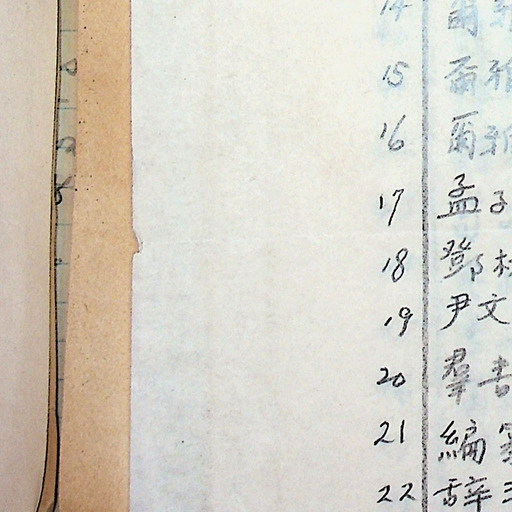 14 爾
15 爾雅
16 爾雅
17 孟子
18 鄧
19 尹文
20 羣書
21 編
22 辞